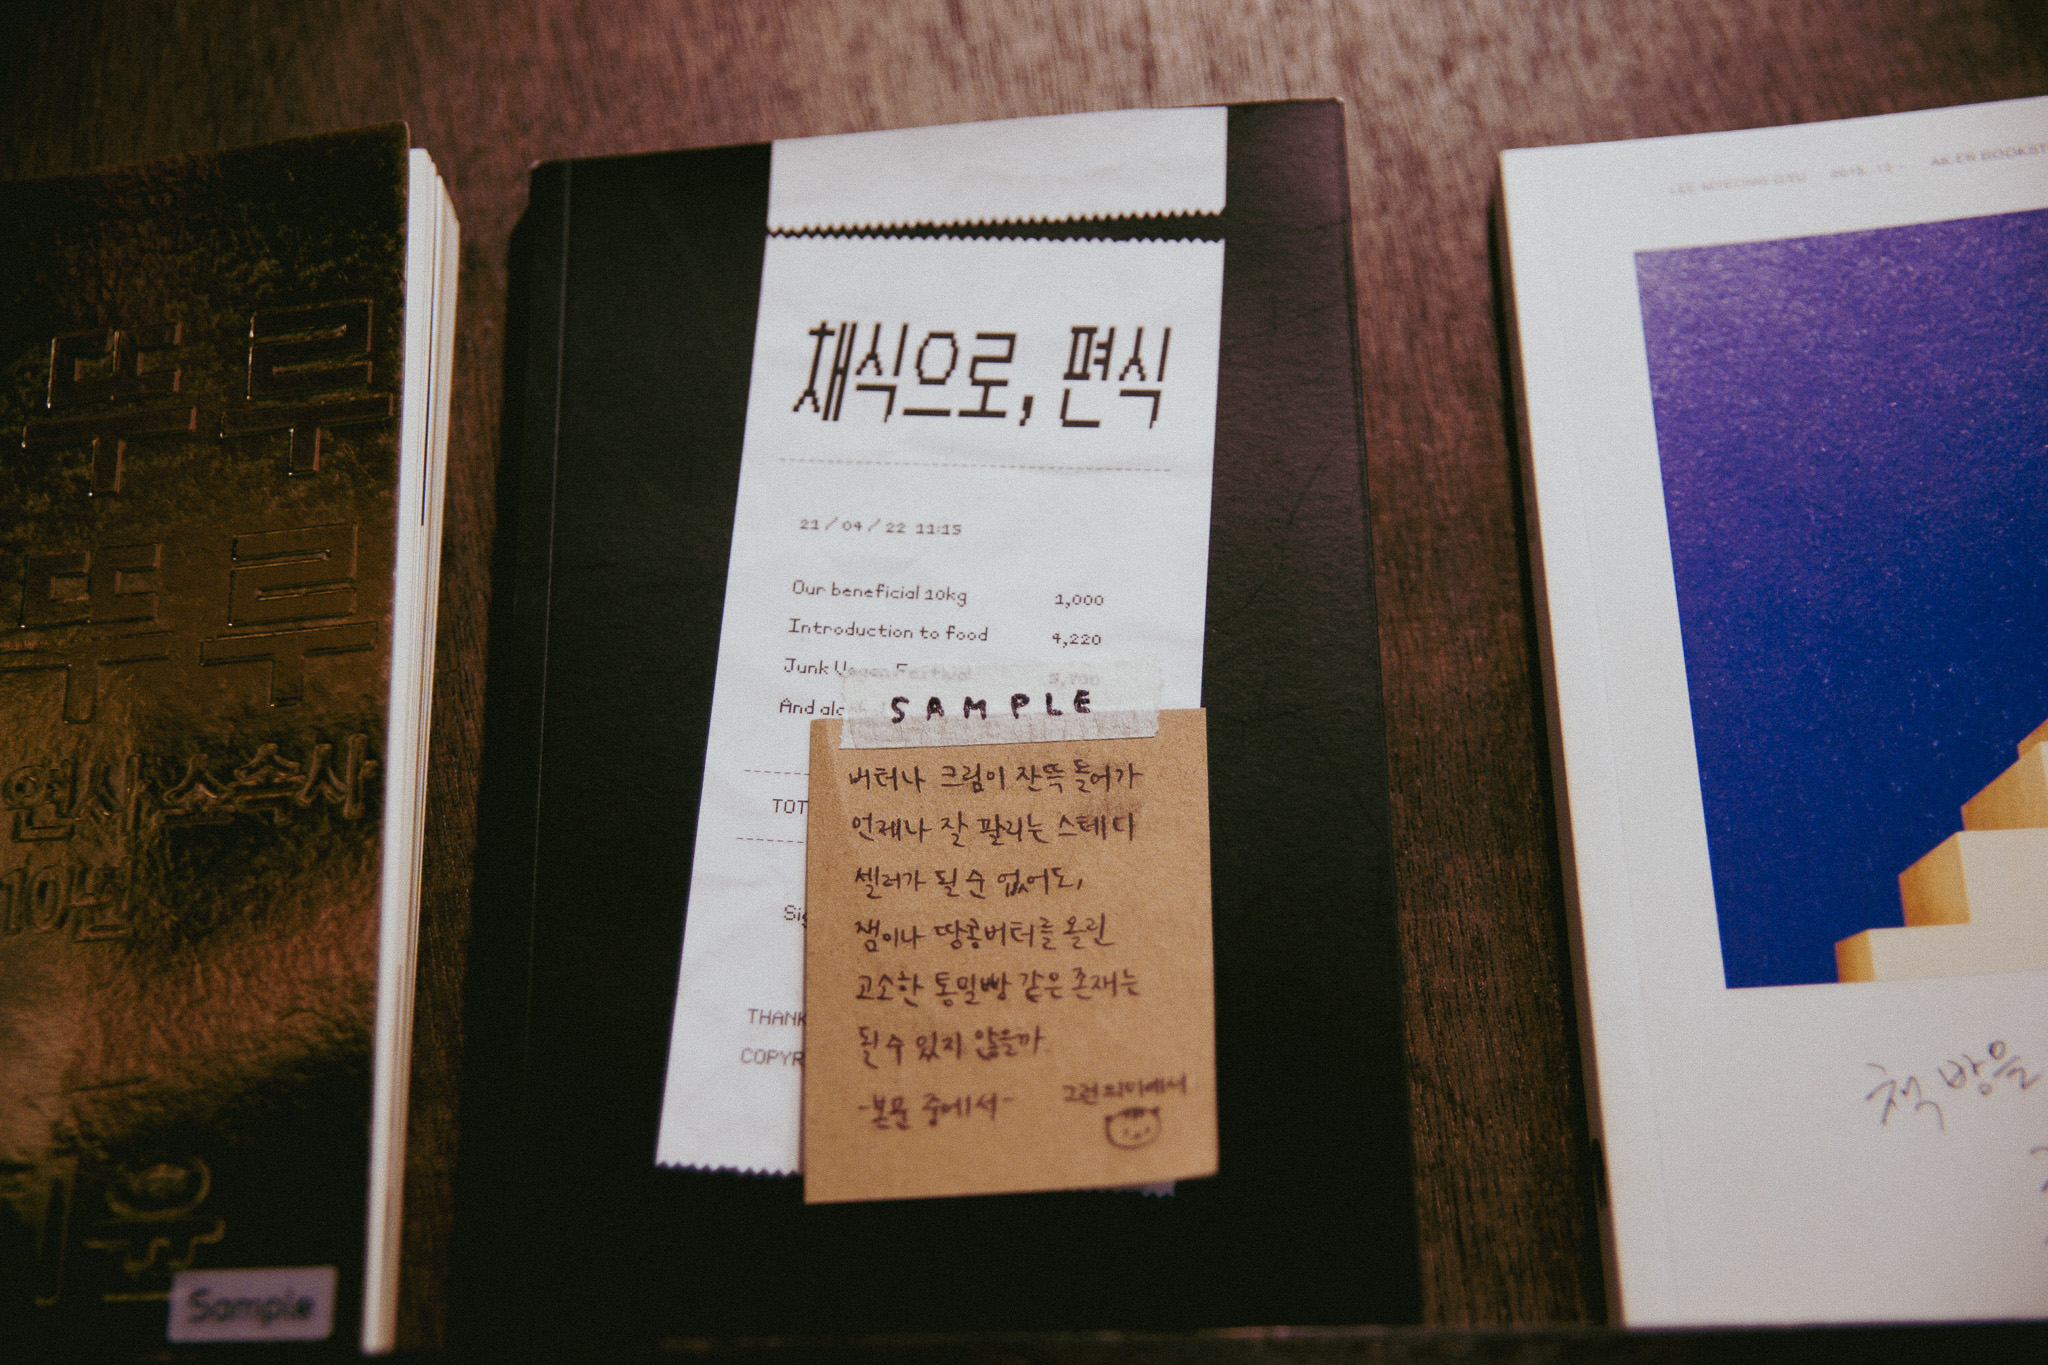 뚜루
뚜루
연사 소속사
10년
Sample
채식으로, 편식
21 / 04 / 22 11:15
Our beneficial 10kg 1,000
Introduction to food 4,220
Junk Vegan Festival 5,700
And alc
TOT
Sig
THANK
COPYR
SAMPLE
버터나 크림이 잔뜩 들어가
언제나 잘 팔리는 스테디
셀러가 될 순 없어도,
잼이나 땅콩버터를 올린
고소한 통밀빵 같은 존재는
될 수 있지 않을까.
-본문 중에서-
그런 의미에서
LEE MYEONG GYU 2015. 12 - AK EN BOOKST
책방을